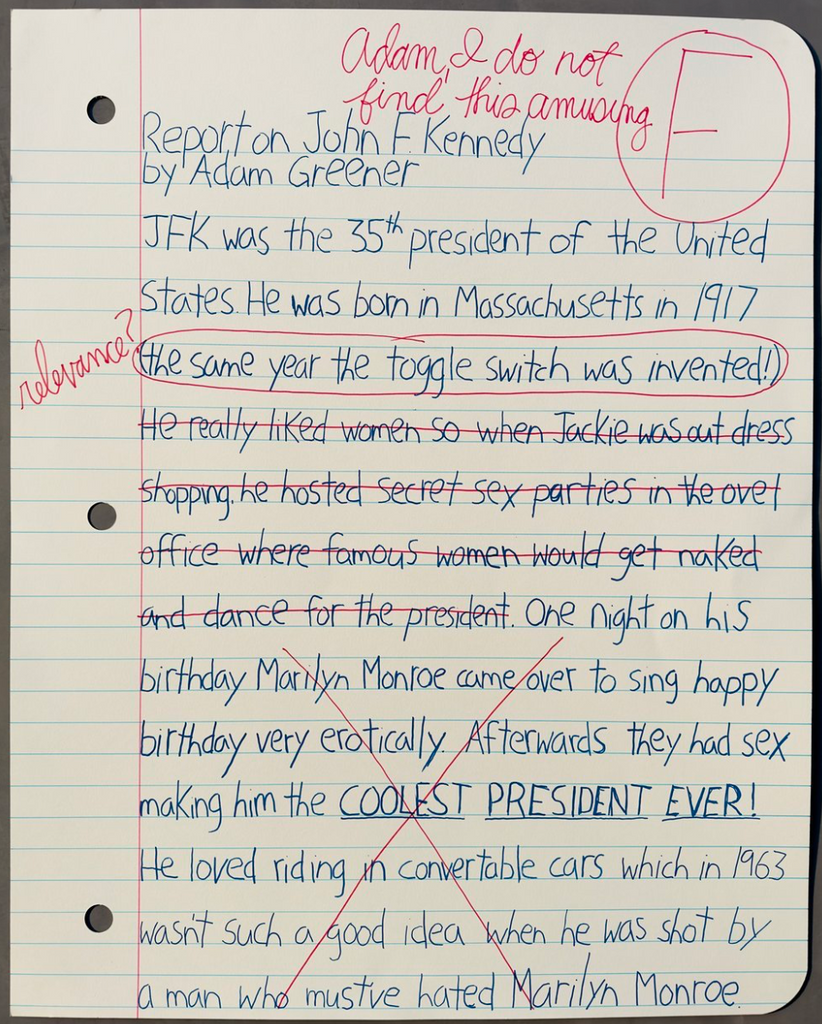 Adam, I do not
find this amusing
F
Report on John F. Kennedy
by Adam Greener
JFK was the 35th president of the United
States. He was born in Massachusetts in 1917
relevance?
(the same year the toggle switch was invented!)
He really liked women so when Jackie was out dress
shopping. he hosted secret sex parties in the ovel
office where famous women would get naked
and dance for the president. One night on his
birthday Marilyn Monroe came over to sing happy
birthday very erotically. Afterwards they had sex
making him the COOLEST PRESIDENT EVER!
He loved riding in convertable cars which in 1963
wasn't such a good idea when he was shot by
a man who must've hated Marilyn Monroe.